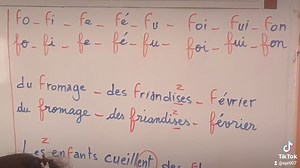 fo - fi - fe - fé - fu - foi - fui - fon
fo - fi - fe - fé - fu - foi - fui - fon
du fromage - des friandises - février
du fromage - des friandises - février
Les enfants cueillent des
TikTok